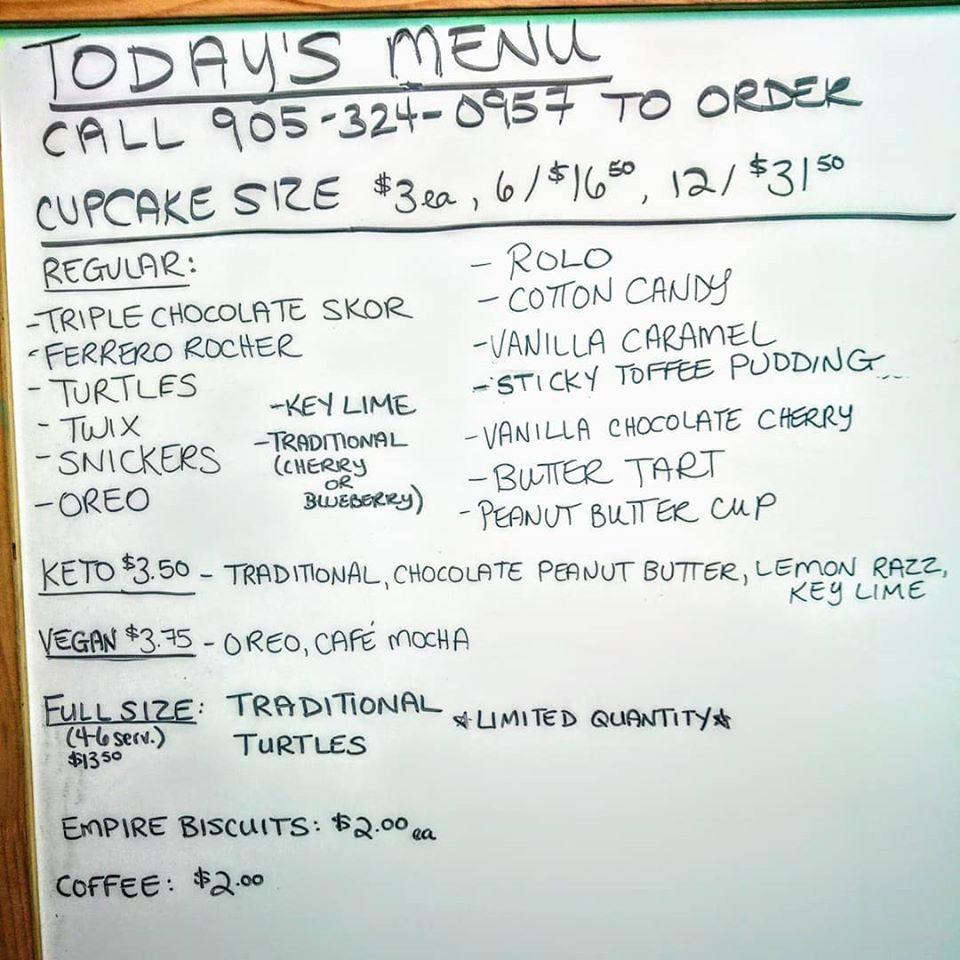 TODAY'S MENU
CALL 905-324-0957 TO ORDER
CUPCAKE SIZE $3 ea, 6/$16.50, 12/$31.50
REGULAR:
-TRIPLE CHOCOLATE SKOR
-FERRERO ROCHER
-TURTLES
-TWIX
-SNICKERS
-OREO
-KEY LIME
-TRADITIONAL
(CHERRY
OR
BLUEBERRY)
-ROLO
-COTTON CANDY
-VANILLA CARAMEL
-STICKY TOFFEE PUDDING
-VANILLA CHOCOLATE CHERRY
-BUTTER TART
-PEANUT BUTTER CUP
KETO $3.50 - TRADITIONAL, CHOCOLATE PEANUT BUTTER, LEMON RAZZ,
KEY LIME
VEGAN $3.75 - OREO, CAFÉ MOCHA
FULL SIZE: TRADITIONAL *LIMITED QUANTITY*
(4-6 serv.) TURTLES
$13.50
EMPIRE BISCUITS: $2.00 ea
COFFEE: $2.00